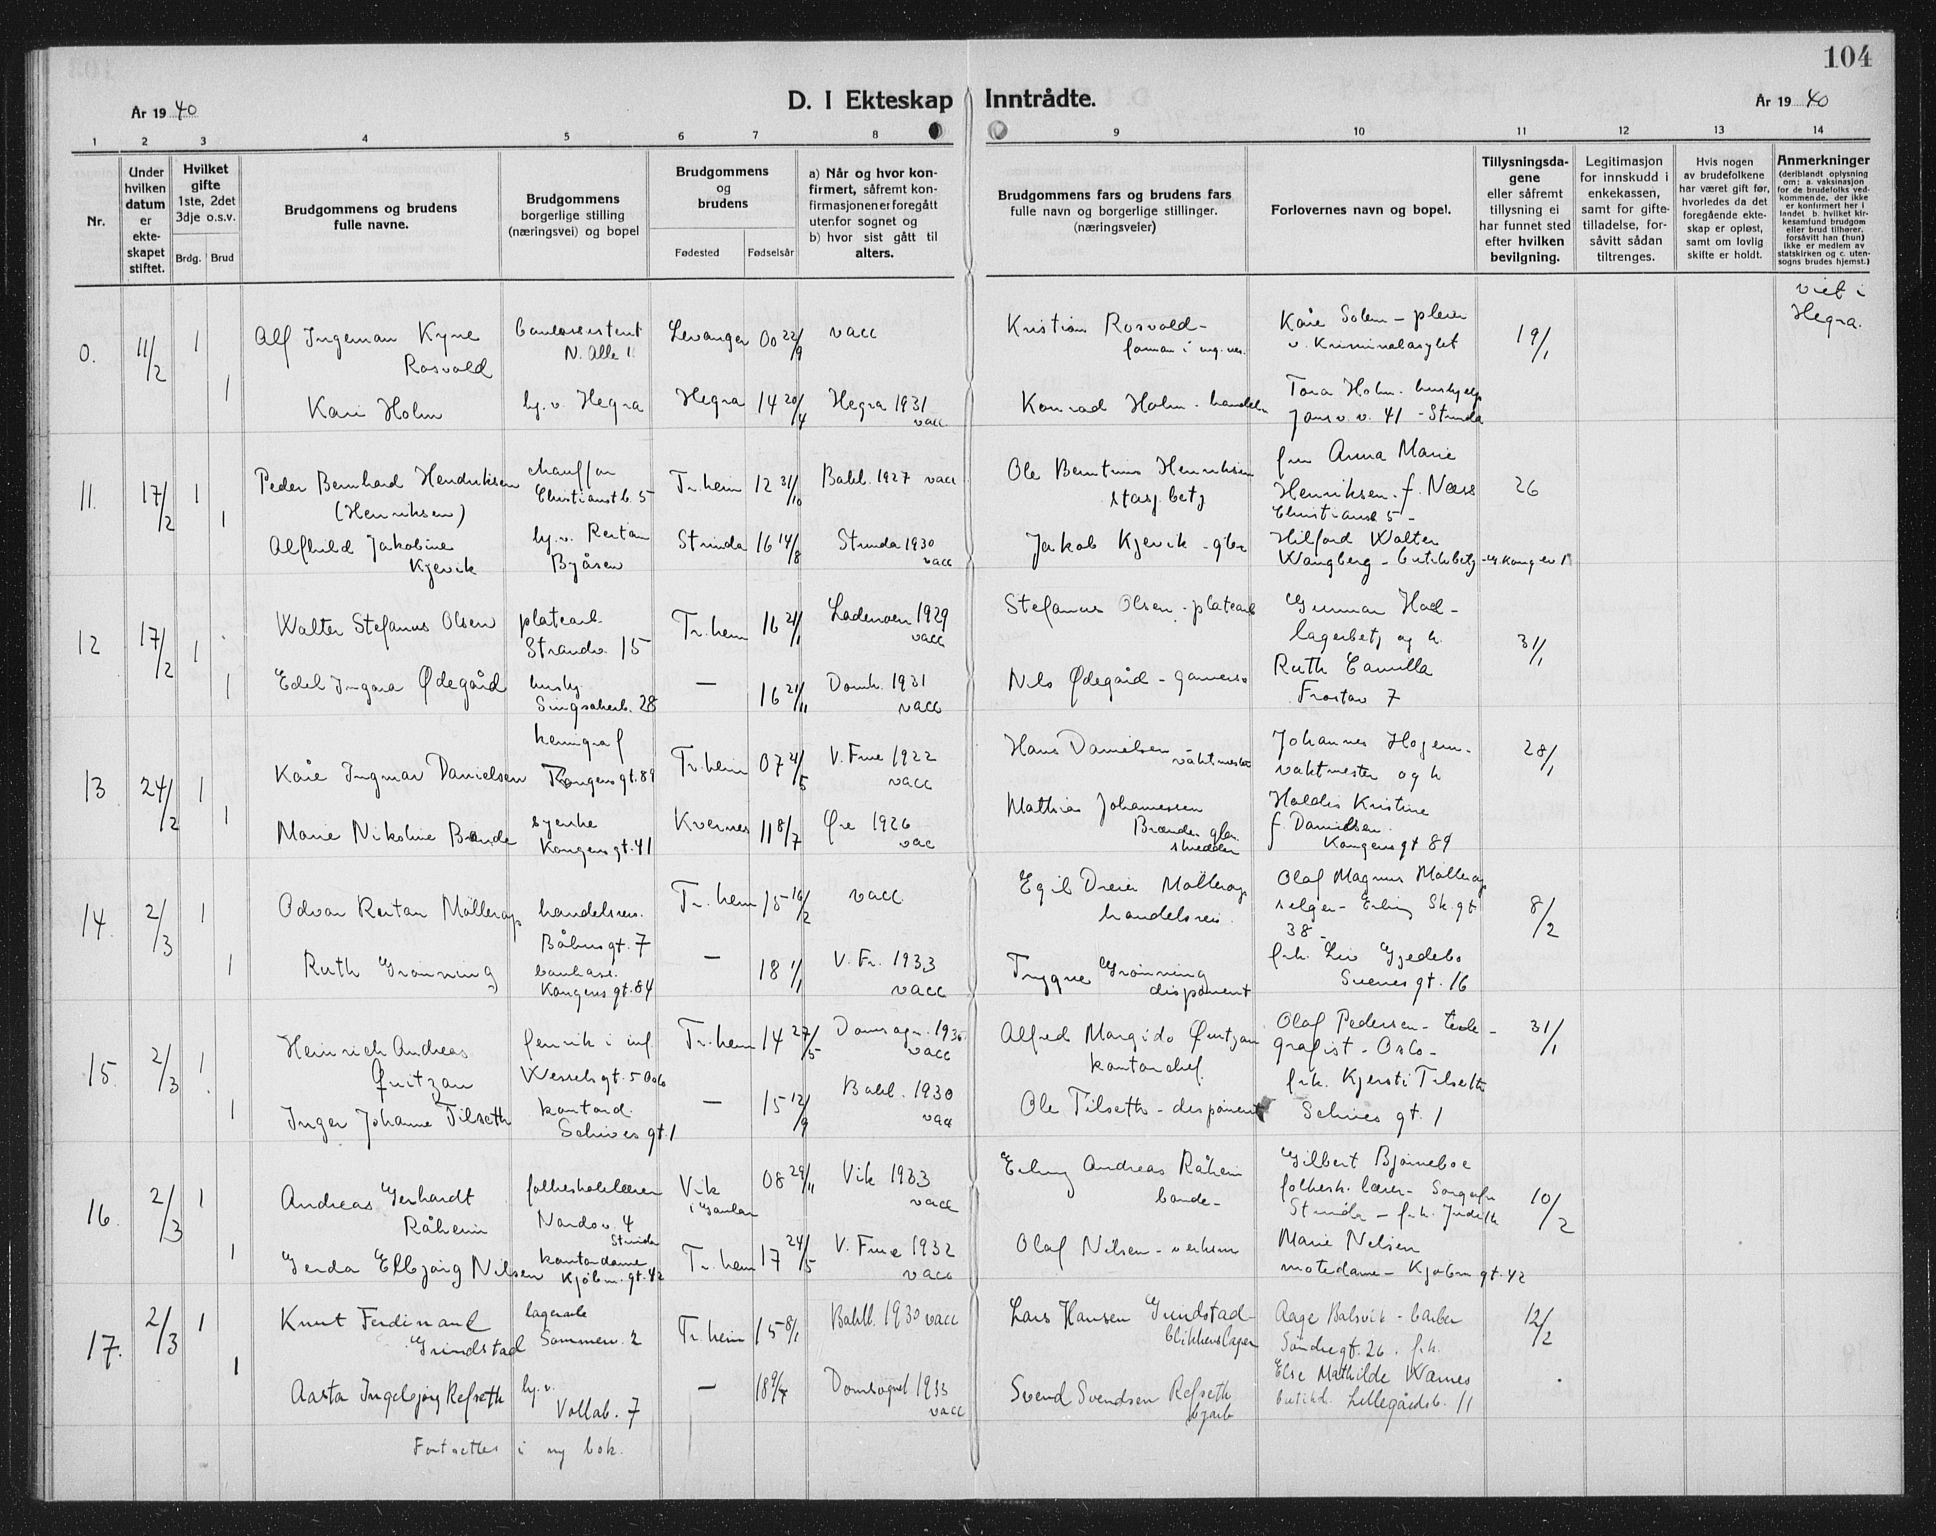 104
År 1940
D. I Ekteskap Inntrådte.
År 1940
1 2 3 4 5 6 7 8 9 10 11 12 13 14
Nr.
Under hvilken datum er ekteskapet stiftet.
Hvilket gifte 1ste, 2det 3dje o.s.v.
Brdg. Brud
Brudgommens og brudens fulle navne.
Brudgommens borgerlige stilling (næringsvei) og bopel
Brudgommens og brudens
Fødested Fødselsår
a) Når og hvor konfirmert, såfremt konfirmasjonen er foregått utenfor sognet og
b) hvor sist gått til alters.
Brudgommens fars og brudens fars fulle navn og borgerlige stillinger. (næringsveier)
Forlovernes navn og bopel.
Tillysningsdagene eller såfremt tillysning ei har funnet sted efter hvilken bevilgning.
Legitimasjon for innskudd i enkekassen, samt for giftetilladelse, forsåvitt sådan tiltrenges.
Hvis nogen av brudefolkene har været gift før, hvorledes da det foregående ekteskap er opløst, samt om lovlig skifte er holdt.
Anmerkninger (deriblandt oplysning om: a. vaksinasjon for de brudefolks vedkommende, der ikke er konfirmert her i landet. b. hvilket kirkesamfund brudgom eller brud tilhører, forsåvitt han (hun) ikke er medlem av statskirken og c. utensogns brudes hjemst.)
0. 11/2 1 Alf Ingeman Kyne Rosvold N. Alle 11 Levanger 00 22/9 vacc Kristian Rosvold - Kåre Solem - pleier v. Kriminalasylet 19/1 viet i Hegra.
1 Kari Holm hj. v. Hegra Hegra 14 20/4 Hegra 1931 vacc Konrad Holm - handelsm Tora Holm - hushjelp Jonsv. v. 41 - Strinda
11. 17/2 1 Peder Bernhard Hendriksen (Henriksen) chauffør Christianstb. 5 Tr.heim 12 31/10 Bakl. 1927 vacc Ole Berntinus Henriksen stasj.betj fru Anna Marie Henriksen f. Næss Christianst 5 - 26
1 Alfhild Jakobine Kjevik hj. v. Byåsen Strinda 16 14/8 Strinda 1930 vacc Jakob Kjevik - gbr Wangberg - butikkbetj
12 17/2 1 Walter Stefanus Olsen platearb. Strandv. 15 Tr.heim 16 21/1 Lademoen 1929 vacc Stefanus Olsen - platearb Gunnar Had - lagerbetj og h. 31/1
1 Edel Ingara Ødegård hushj. Singsakerb. 28 - 16 21/11 Domk. 1931 vacc Nils Ødegård - Ruth Camilla Frostav 7
13 24/2 1 Kåre Ingmar Danielsen kemigraf Kongens gt. 89 Tr.heim 07 21/5 V. Frue 1922 vacc Hans Danielsen - vaktmester Johannes Hogem - vaktmester og h 28/1
1 Marie Nikoline Brande syerske Kongens gt. 41 Kvernes 11 8/7 Øre 1926 vac Mathias Johannessen Haldis Kristine f. Danielsen. Kongens gt 89
14. 2/3 1 Odvar Reitan Möllerop handelsreis. Båhus gt. 7 Tr.heim 15 16/2 vacc Egil Dreier Möllerop handelsreis. Olaf Magnus Möllerop selger - Erling Sk. gt 38 - 8/2
1 Ruth Grønning bankass. Kongens gt. 84 - 18 1/1 V. Fr. 1933 vacc Trygve Grønning disponent frk. Liv Gjedebo Sverres gt. 16
15. 2/3 1 Heinrich Andreas Øritzan fenrik i inf Wessels gt. 5 Oslo Tr.heim 14 27/5 vacc Alfred Margido kontorchef Olaf Pedersen - telegrafist - Oslo - 31/1
1 Inger Johanne Tilseth kontord. Schives gt. 1 - 15 12/9 Bakl. 1930 vacc Ole Tilseth - disponent frk. Kjersti Tilseth Schives gt. 1
16. 2/3 1 Andreas Gerhardt Råheim folkeskolelærer Nardov. 4 Strinda Vik 08 29/11 Vik 1933 vacc Erling Andreas Råheim bonde - Gilbert Bjørneboe folkesk. lærer - Strinda - frk. Judith 10/2
1 Gerda Elbjørg Nilsen kontordame Kjøbm. gt. 42 Tr.heim 17 24/5 V. Frue 1932 vacc Olaf Nilsen - Marie Nelsen motedame - Kjøbm gt. 42
17. 2/3 1 Knut Ferdinand Grindstad lagerarb Sommerv. 2 Tr.heim 15 8/1 Bakl. 1930 vacc Lars Hansen Grindstad blikkenslager Aage Balsvik - barber Søndregt. 26. frk. 12/2
1 Aasta Ingebjørg Refseth hj. v. Vollab. 7 - 18 9/4 Domsognet 1933 vacc Svend Svendsen Refseth Else Mathilde Warnes butikd. Lillegårdsb. 11
Fortsettes i ny bok.